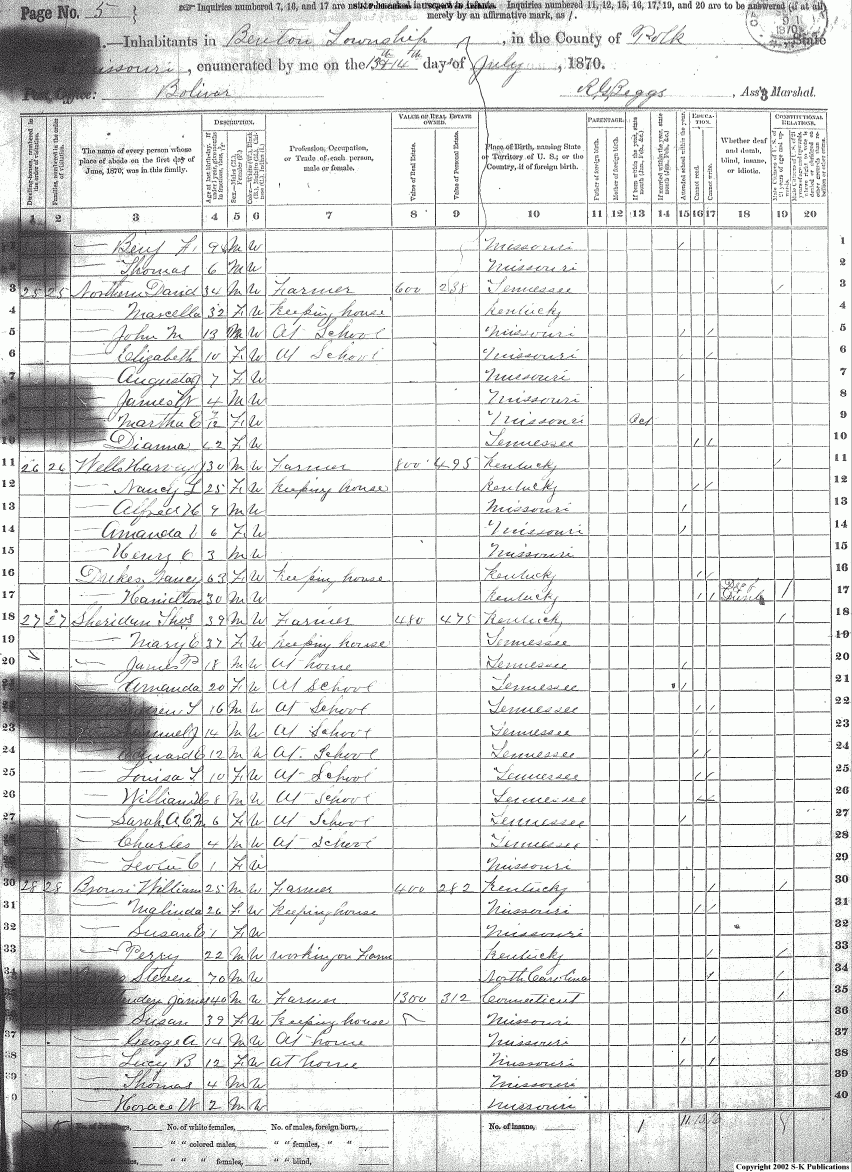 Page No. 5
Inquiries numbered 7, 16, and 17 are not to be asked in respect to infants. Inquiries numbered 11, 12, 15, 16, 17, 19, and 20 are to be answered (if at all) merely by an affirmative mark, as /.
—Inhabitants in Benton Township, in the County of Polk, State
Missouri, enumerated by me on the 14th day of July, 1870.
Post Office: Bolivar R G Beggs, Ass't Marshal.
DESCRIPTION. VALUE OF REAL ESTATE OWNED. PARENTAGE. EDUCATION. CONSTITUTIONAL RELATIONS.
The name of every person whose place of abode on the first day of June, 1870, was in this family.
Profession, Occupation, or Trade of each person, male or female.
Value of Real Estate.
Value of Personal Estate.
Place of Birth, naming State or Territory of U. S.; or the Country, if of foreign birth.
Father of foreign birth.
Mother of foreign birth.
Attended school within the year.
Cannot read.
Cannot write.
Whether deaf and dumb, blind, insane, or idiotic.
1 2 3 4 5 6 7 8 9 10 11 12 13 14 15 16 17 18 19 20
— Benj H. 9 M W Missouri / 1
— Thomas 6 M W Missouri 2
3 25 25 Northern David 34 M W Farmer 600 238 Tennessee / 3
4 — Marcella 32 F W Keeping house Kentucky 4
5 — John M 13 M W At School Missouri / / 5
6 — Elizabeth 10 F W At School Missouri / / 6
7 — Augusta J 7 F W Missouri / 7
— James W 4 M W Missouri 8
— Martha E 7/12 F W Missouri Oct 9
10 — Dianna 62 F W Tennessee / / 10
11 26 26 Wells Harvey J 30 M W Farmer 800 495 Kentucky / 11
12 — Nancy L 25 F W Keeping house Kentucky / / 12
13 — Alfred H 9 M W Missouri / 13
14 — Amanda 6 F W Missouri / 14
15 — Henry C 3 M W Missouri 15
16 Dukes Nancy 63 F W Keeping house Kentucky / / 16
17 — Hamilton 30 M W Kentucky / / Deaf Dumb / 17
18 27 27 Sheridan Thos 39 M W Farmer 480 475 Kentucky / 18
19 — Mary E 37 F W Keeping house Tennessee 19
20 — James P 18 M W At home Tennessee / 20
— Amanda 20 F W At School Tennessee / 21
16 M W At School Tennessee / / 22
23 Samuel J 14 M W At School Tennessee 23
24 Edward C 12 M W At School Tennessee / / 24
25 — Louisa T. 10 F W At School Tennessee / / 25
26 — William 8 M W At School Tennessee 26
27 — Sarah A C M 6 F W At School Tennessee / 27
— Charles 4 M W At School Tennessee 28
— 1 F W Missouri 29
30 28 28 Brown William 25 M W Farmer 400 282 Kentucky / / 30
31 — Malinda 26 F W Keeping house Missouri / / 31
32 — Susan E 1 F W Missouri 32
33 — Perry 22 M W Working on Farm Kentucky / / 33
34 Steven 70 M W North Carolina / / 34
James 40 M W Farmer 1300 312 Connecticut / 35
Susan 39 F W Keeping house Missouri 36
37 — George A 14 M W At home Missouri / / 37
38 — Lucy B 12 F W At home Missouri / / 38
39 — Thomas 4 M W Missouri 39
— Horace W 2 M W Missouri 40
No. of white females, No. of males, foreign born, No. of insane, 1
" " colored males, " " females, " "
" " " females, " " blind,
Copyright 2002 S-K Publications